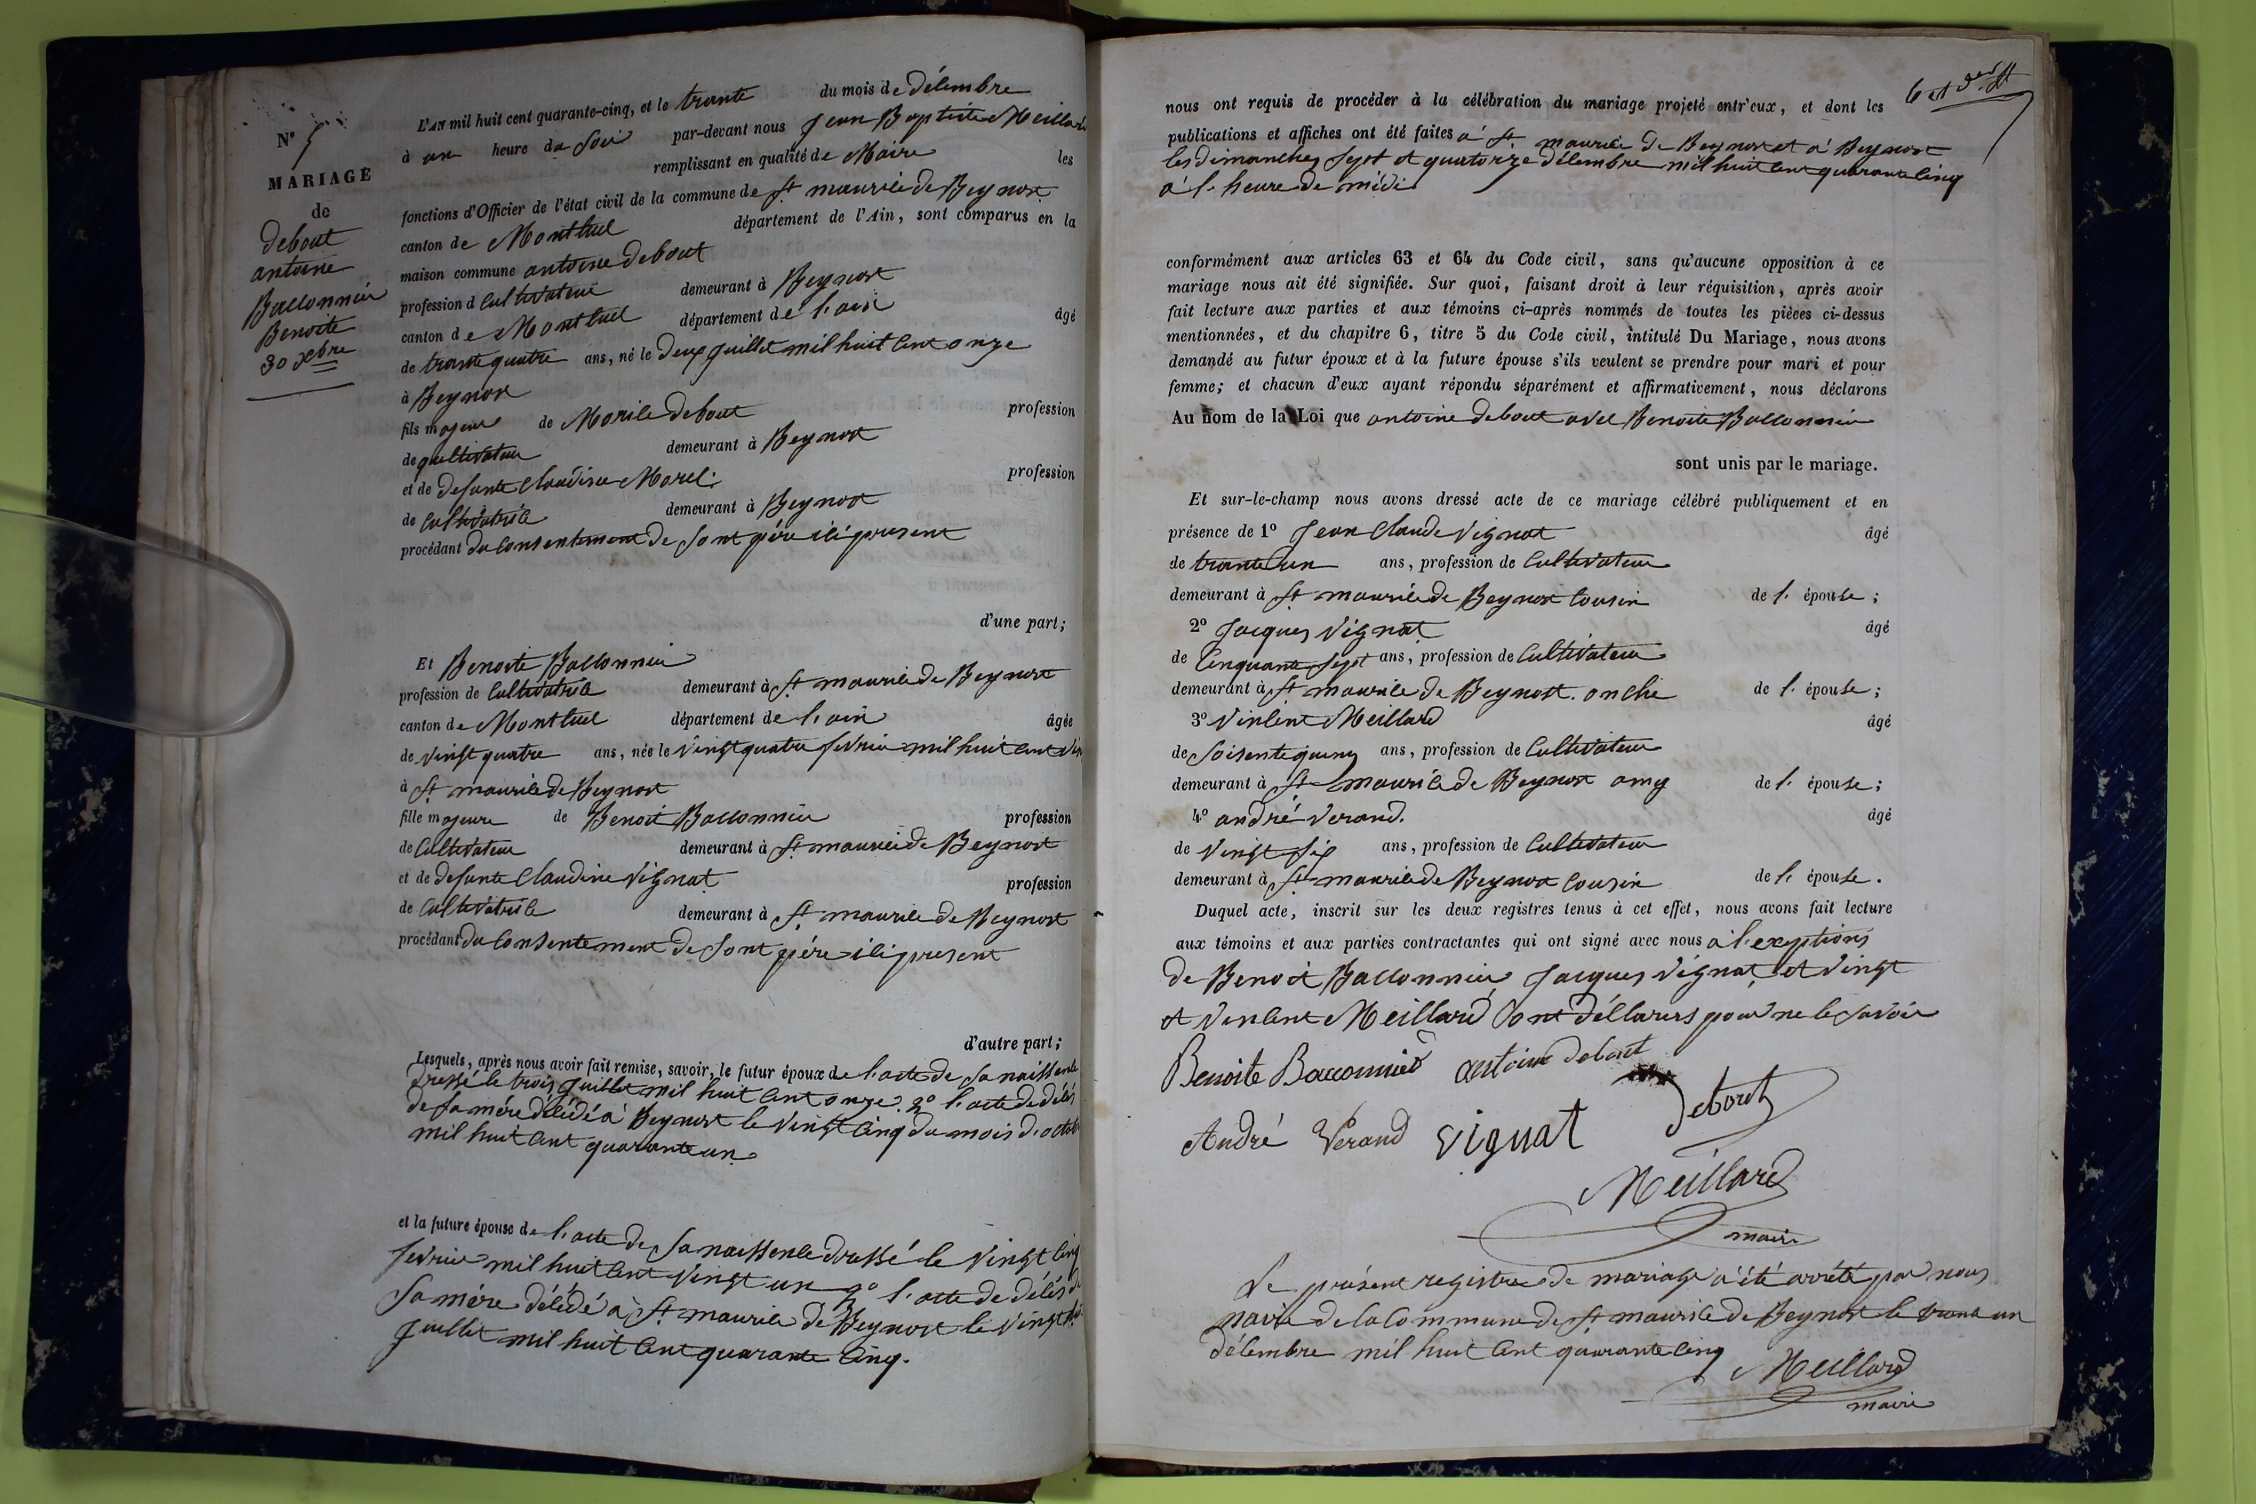 N° 5
MARIAGE
de
debout
antoine
Bacconnier
Benoite
30 Xbre
L'AN mil huit cent quarante-cinq, et le trante du mois de délembre
à une heure du soir par-devant nous Jean Baptiste Meillard
remplissant en qualité de Maire les
fonctions d'Officier de l'état civil de la commune de St maurice de Beynost
canton de Montluel département de l'Ain, sont comparus en la
maison commune antoine debout
profession d cultivateur demeurant à Beynost
canton de Montluel département de l'ain âgé
de trante quatre ans, né le deux Juillet mil huit cent onze
à Beynost
fils majeur de Morile debout profession
de cultivateur demeurant à Beynost
et de defunte claudine Morel profession
de cultivatrice demeurant à Beynost
procédant du consentement de sont père ici present
d'une part;
Et Benoite Bacconnier
profession de cultivatrice demeurant à St maurice de Beynost
canton de Montluel département de l'ain âgée
de vingt quatre ans, née le vingt quatre fevrier mil huit cent
à St maurice de Beynost
fille majeure de Benoit Bacconnier profession
de cultivateur demeurant à St maurice de Beynost
et de defunte claudine vignat profession
de cultivatrice demeurant à St maurice de Beynost
procédant du consentement de sont père ici present
d'autre part;
Lesquels, après nous avoir fait remise, savoir, le futur époux de l'acte de sa naissence
dressé le trois Juillet mil huit cent onze. 2° l'acte de délés
de sa mére délédé à Beynost le vingt cinq du mois d'octobre
mil huit cent quarante un
et la future épouse de l'acte de sa naissence dressé le vingt cinq
fevrier mil huit cent vingt un 2° l'acte de délés de
sa mére délédé à St maurice de Beynost le vingt
Juillet mil huit cent quarante cinq.
6 et der ft
nous ont requis de procéder à la célébration du mariage projeté entr'eux, et dont les
publications et affiches ont été faites à St maurice de Beynost et à Beynost
les dimanches sept et quatorze délembre mil huit cent quarante cinq
à l'heure de midi
conformément aux articles 63 et 64 du Code civil, sans qu'aucune opposition à ce
mariage nous ait été signifiée. Sur quoi, faisant droit à leur réquisition, après avoir
fait lecture aux parties et aux témoins ci-après nommés de toutes les pièces ci-dessus
mentionnées, et du chapitre 6, titre 5 du Code civil, intitulé Du Mariage, nous avons
demandé au futur époux et à la future épouse s'ils veulent se prendre pour mari et pour
femme; et chacun d'eux ayant répondu séparément et affirmativement, nous déclarons
Au nom de la Loi que antoine debout avec Benoite Bacconnier
sont unis par le mariage.
Et sur-le-champ nous avons dressé acte de ce mariage célébré publiquement et en
présence de 1° Jean Claude vignat âgé
de trante un ans, profession de cultivateur
demeurant à St maurice de Beynost cousin de l' épouse;
2° Jacques vignat âgé
de cinquante sept ans, profession de cultivateur
demeurant à St maurice de Beynost. oncle de l' épouse;
3° vincent Meillard âgé
de soisente quinz ans, profession de cultivateur
demeurant à St maurice de Beynost amy de l' épouse;
4° andré verand. âgé
de vingt six ans, profession de cultivateur
demeurant à St maurice de Beynost cousin de l' épouse.
Duquel acte, inscrit sur les deux registres tenus à cet effet, nous avons fait lecture
aux témoins et aux parties contractantes qui ont signé avec nous à l'exeptions
de Benoit Bacconnier, Jacques vignat, et vingt
et vincent Meillard ont déllarers pour ne le savoir
Benoite Bacconnier antoine debout
André Verand vignat debout
Meillard
maire
Le présent registre de mariage a été arrété par nous
maire de la commune de St maurice de Beynost le trante un
délembre mil huit cent quarante cinq Meillard
maire